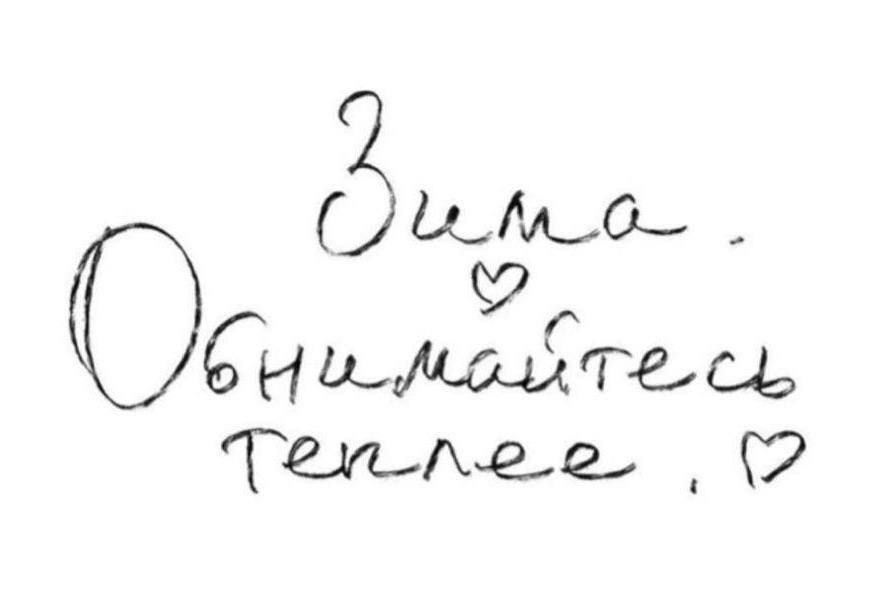 Зима.
♡
Обнимайтесь
теплее. ♡